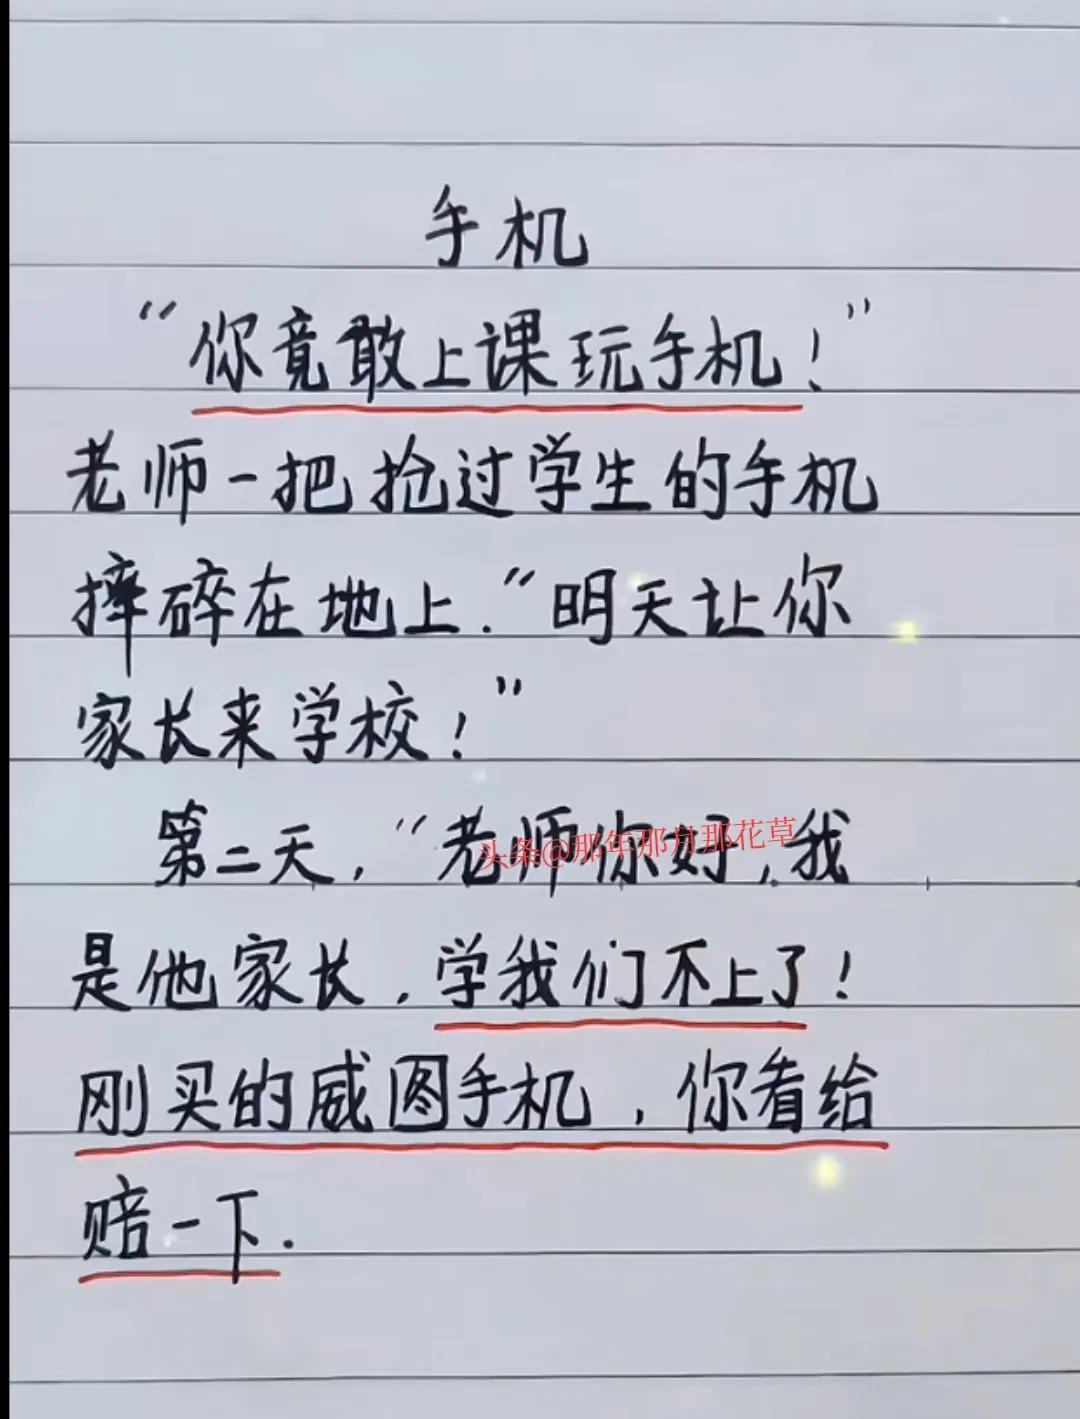 手机
“你竟敢上课玩手机！”
老师一把抢过学生的手机
摔碎在地上.“明天让你
家长来学校！”
第二天，“老师你好，我
头条@那年那月那花草
是他家长，学我们不上了！
刚买的威图手机，你看给
赔一下.